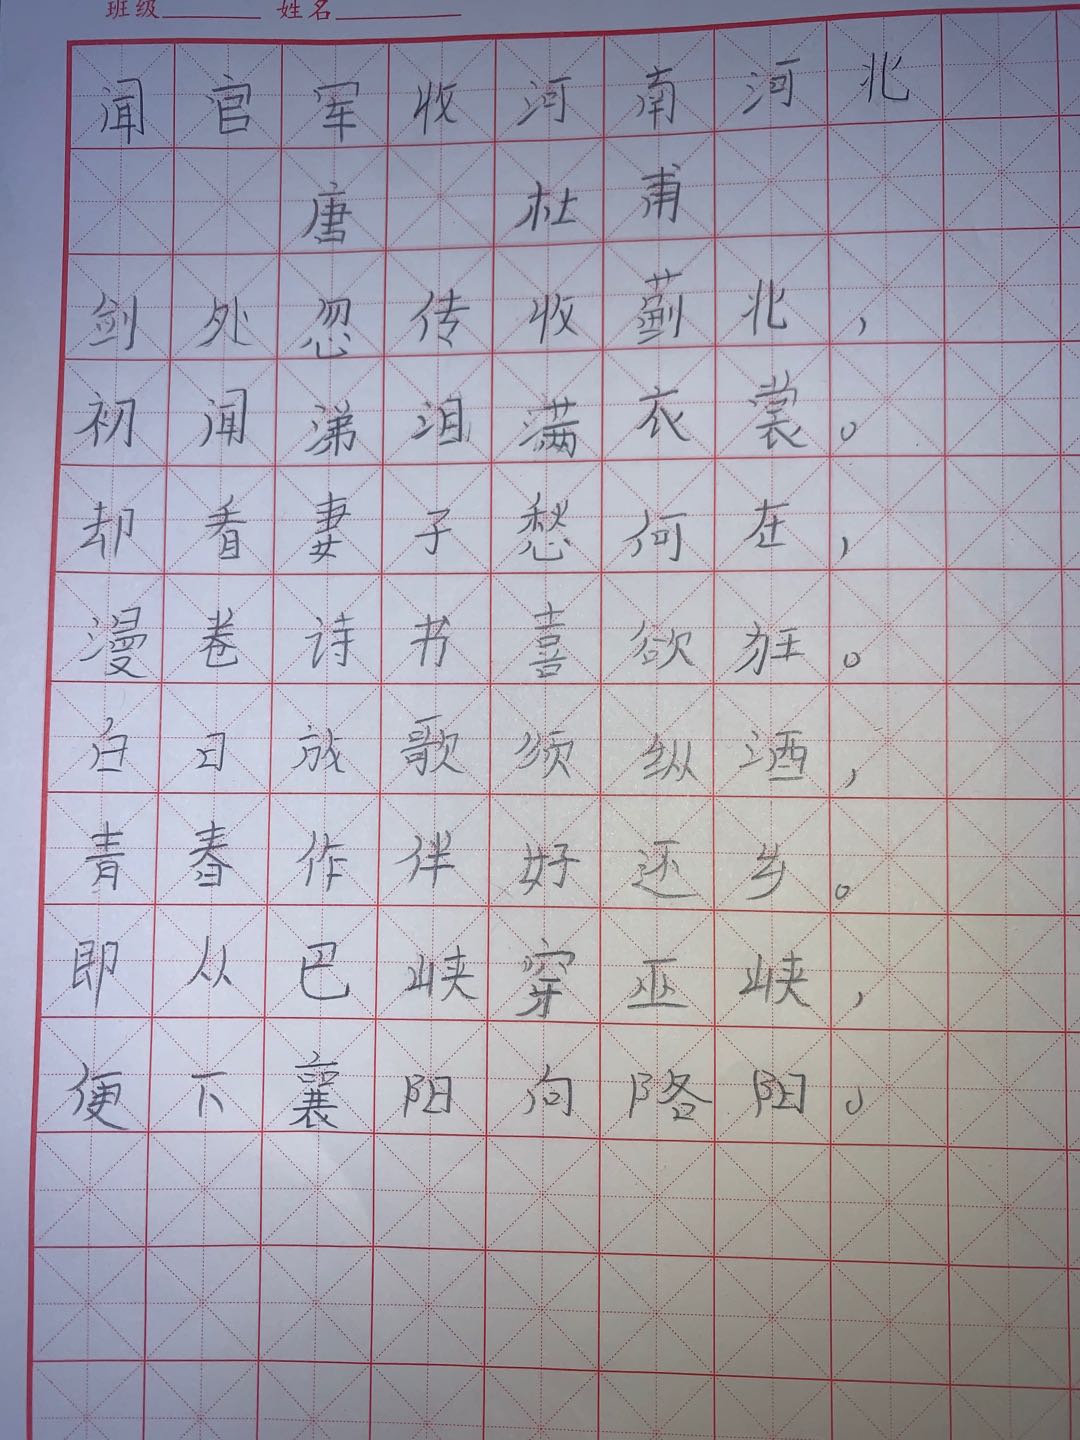 班级______ 姓名________
闻官军收河南河北
唐 杜甫
剑处忽传收蓟北，
初闻涕泪满衣裳。
却看妻子愁何在，
漫卷诗书喜欲狂。
白日放歌须纵酒，
青春作伴好还乡。
即从巴峡穿巫峡，
便下襄阳向阳。